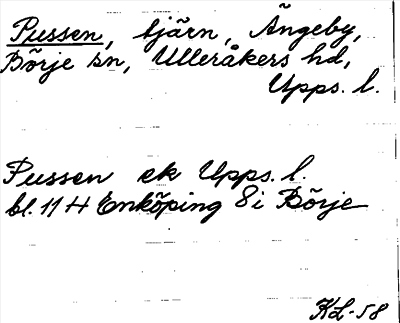 Pussen, tjärn, Ängeby,
Börje sn, Ulleråkers hd,
Upps. l.
Pussen ek Upps. l.
bl. 11 H Enköping 8 i Börje
KL-58